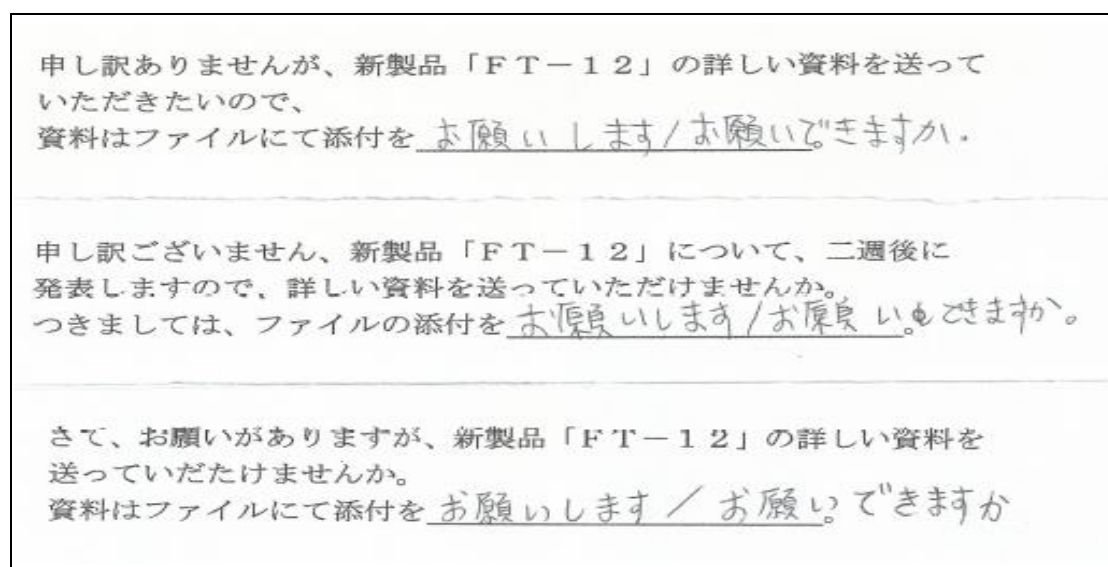 申し訳ありませんが、新製品「ＦＴ－１２」の詳しい資料を送って
いただきたいので、
資料はファイルにて添付をお願いします/お願いできますか.
申し訳ございません、新製品「ＦＴ－１２」について、二週後に
発表しますので、詳しい資料を送っていただけませんか。
つきましては、ファイルの添付をお願いします/お願い。もできますか。
さて、お願いがありますが、新製品「ＦＴ－１２」の詳しい資料を
送っていだたけませんか。
資料はファイルにて添付をお願いします／お願い。できますか